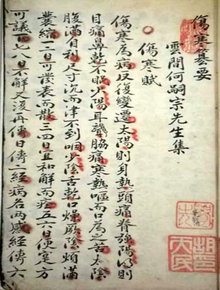 傷寒纂要
雲間何嗣宗先生集
傷寒賦
傷寒為病反復變遷太陽則身熱頭痛脊強陽明則
目痛鼻乾不眠少陽耳聾脇痛寒熱嘔而口為之苦太陰
腹滿自利尺寸沉而津不到咽少陰舌乾口燥厥陰煩滿
囊縮一二日可發表而散三四日宜和解而痊五六日便實方
可議下七日不解又復再傳日傳二經病名兩感經傳六